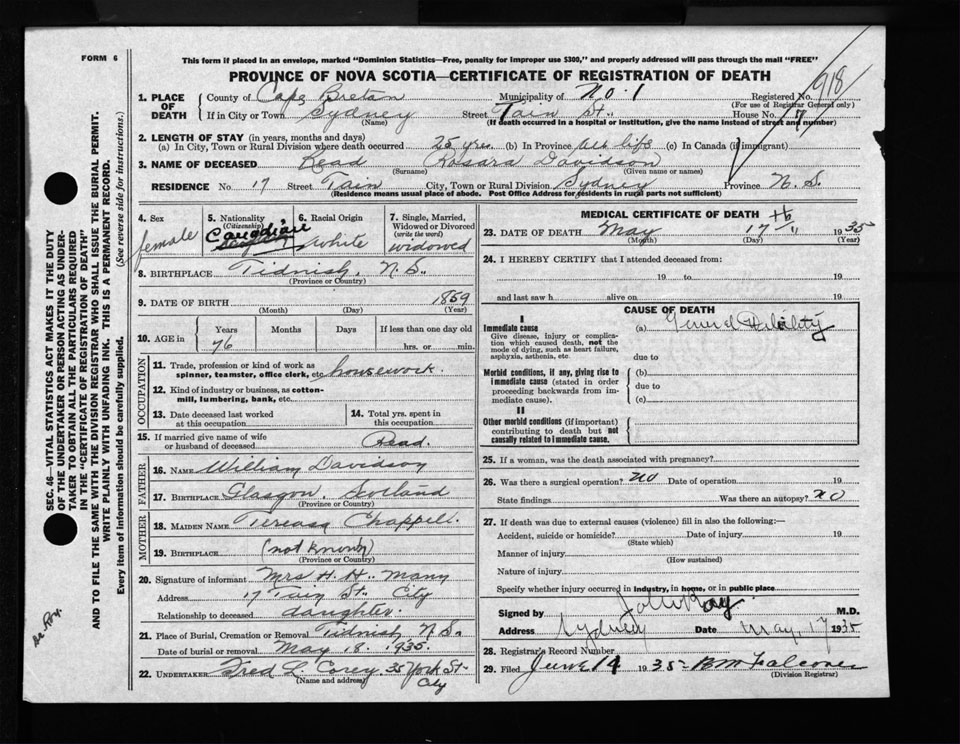 FORM 6
This form if placed in an envelope, marked "Dominion Statistics—Free, penalty for improper use $300," and properly addressed will pass through the mail "FREE"
PROVINCE OF NOVA SCOTIA—CERTIFICATE OF REGISTRATION OF DEATH
918
1. PLACE OF DEATH
County of Cape Breton Municipality of No. 1 Registered No.
(For use of Registrar General only)
If in City or Town Sydney Street Tain St. House No. 17
(Name) (If death occurred in a hospital or institution, give the name instead of street and number)
2. LENGTH OF STAY (in years, months and days)
(a) In City, Town or Rural Division where death occurred 25 yrs. (b) In Province all life (c) In Canada (if immigrant)
3. NAME OF DECEASED Read Rosara Davidson
(Surname) (Given name or names)
RESIDENCE No. 17 Street Tain City, Town or Rural Division Sydney Province N. S.
(Residence means usual place of abode. Post Office Address for residents in rural parts not sufficient)
4. Sex female
5. Nationality (Citizenship) Canadian
6. Racial Origin white
7. Single, Married, Widowed or Divorced (write the word) widowed
8. BIRTHPLACE Tidnish, N. S.
(Province or Country)
9. DATE OF BIRTH 1859
(Month) (Day) (Year)
10. AGE in Years Months Days If less than one day old
76 hrs. or min.
OCCUPATION
11. Trade, profession or kind of work as spinner, teamster, office clerk, etc. housework.
12. Kind of industry or business, as cotton-mill, lumbering, bank, etc.
13. Date deceased last worked at this occupation
14. Total yrs. spent in this occupation
15. If married give name of wife or husband of deceased Read.
FATHER
16. NAME William Davidson
17. BIRTHPLACE Glasgow, Scotland
(Province or Country)
MOTHER
18. MAIDEN NAME Teresa Chappell.
19. BIRTHPLACE (not known)
(Province or Country)
20. Signature of informant Mrs H. H.
Address 17 St. City
Relationship to deceased daughter.
21. Place of Burial, Cremation or Removal Tidnish N. S.
Date of burial or removal May 18. 1935.
22. UNDERTAKER Fred L. Corey. 35 York St.
(Name and address) City
MEDICAL CERTIFICATE OF DEATH
23. DATE OF DEATH May 17th 1935
(Month) (Day) (Year)
24. I HEREBY CERTIFY that I attended deceased from:
19 to 19
and last saw h alive on 19
CAUSE OF DEATH
I
Immediate cause (a) General Debility
Give disease, injury or complication which caused death, not the mode of dying, such as heart failure, asphyxia, asthenia, etc.
due to
Morbid conditions, if any, giving rise to immediate cause (stated in order proceeding backwards from immediate cause) (b)
due to
(c)
II
Other morbid conditions (if important) contributing to death but not causally related to immediate cause.
25. If a woman, was the death associated with pregnancy?
26. Was there a surgical operation? NO Date of operation 19
State findings Was there an autopsy? NO
27. If death was due to external causes (violence) fill in also the following:—
Accident, suicide or homicide? Date of injury 19
(State which)
Manner of injury
(How sustained)
Nature of injury
Specify whether injury occurred in industry, in home, or in public place
Signed by M.D.
Address Sydney Date May, 17 1935
28. Registrar's Record Number
29. Filed June 14 1935 B M Falconer
(Division Registrar)
SEC. 46—VITAL STATISTICS ACT MAKES IT THE DUTY
OF THE UNDERTAKER OR PERSON ACTING AS UNDER-
TAKER TO OBTAIN ALL THE PARTICULARS REQUIRED
IN THE "CERTIFICATE OF REGISTRATION OF DEATH"
AND TO FILE THE SAME WITH THE DIVISION REGISTRAR WHO SHALL ISSUE THE BURIAL PERMIT.
WRITE PLAINLY WITH UNFADING INK. THIS IS A PERMANENT RECORD.
Every item of information should be carefully supplied. (See reverse side for instructions.)